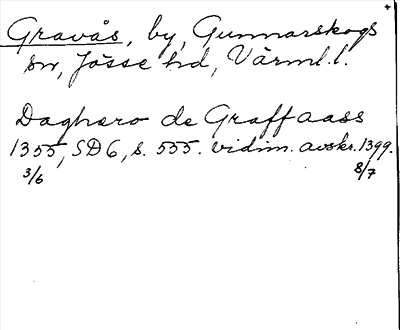 Gravås, by, Gunnarskogs
sn, Jösse hd, Värml. l.
Daghæro de Graffaass
1355, SD 6, s. 555. vidim. avskr. 1399.
3/6 8/7